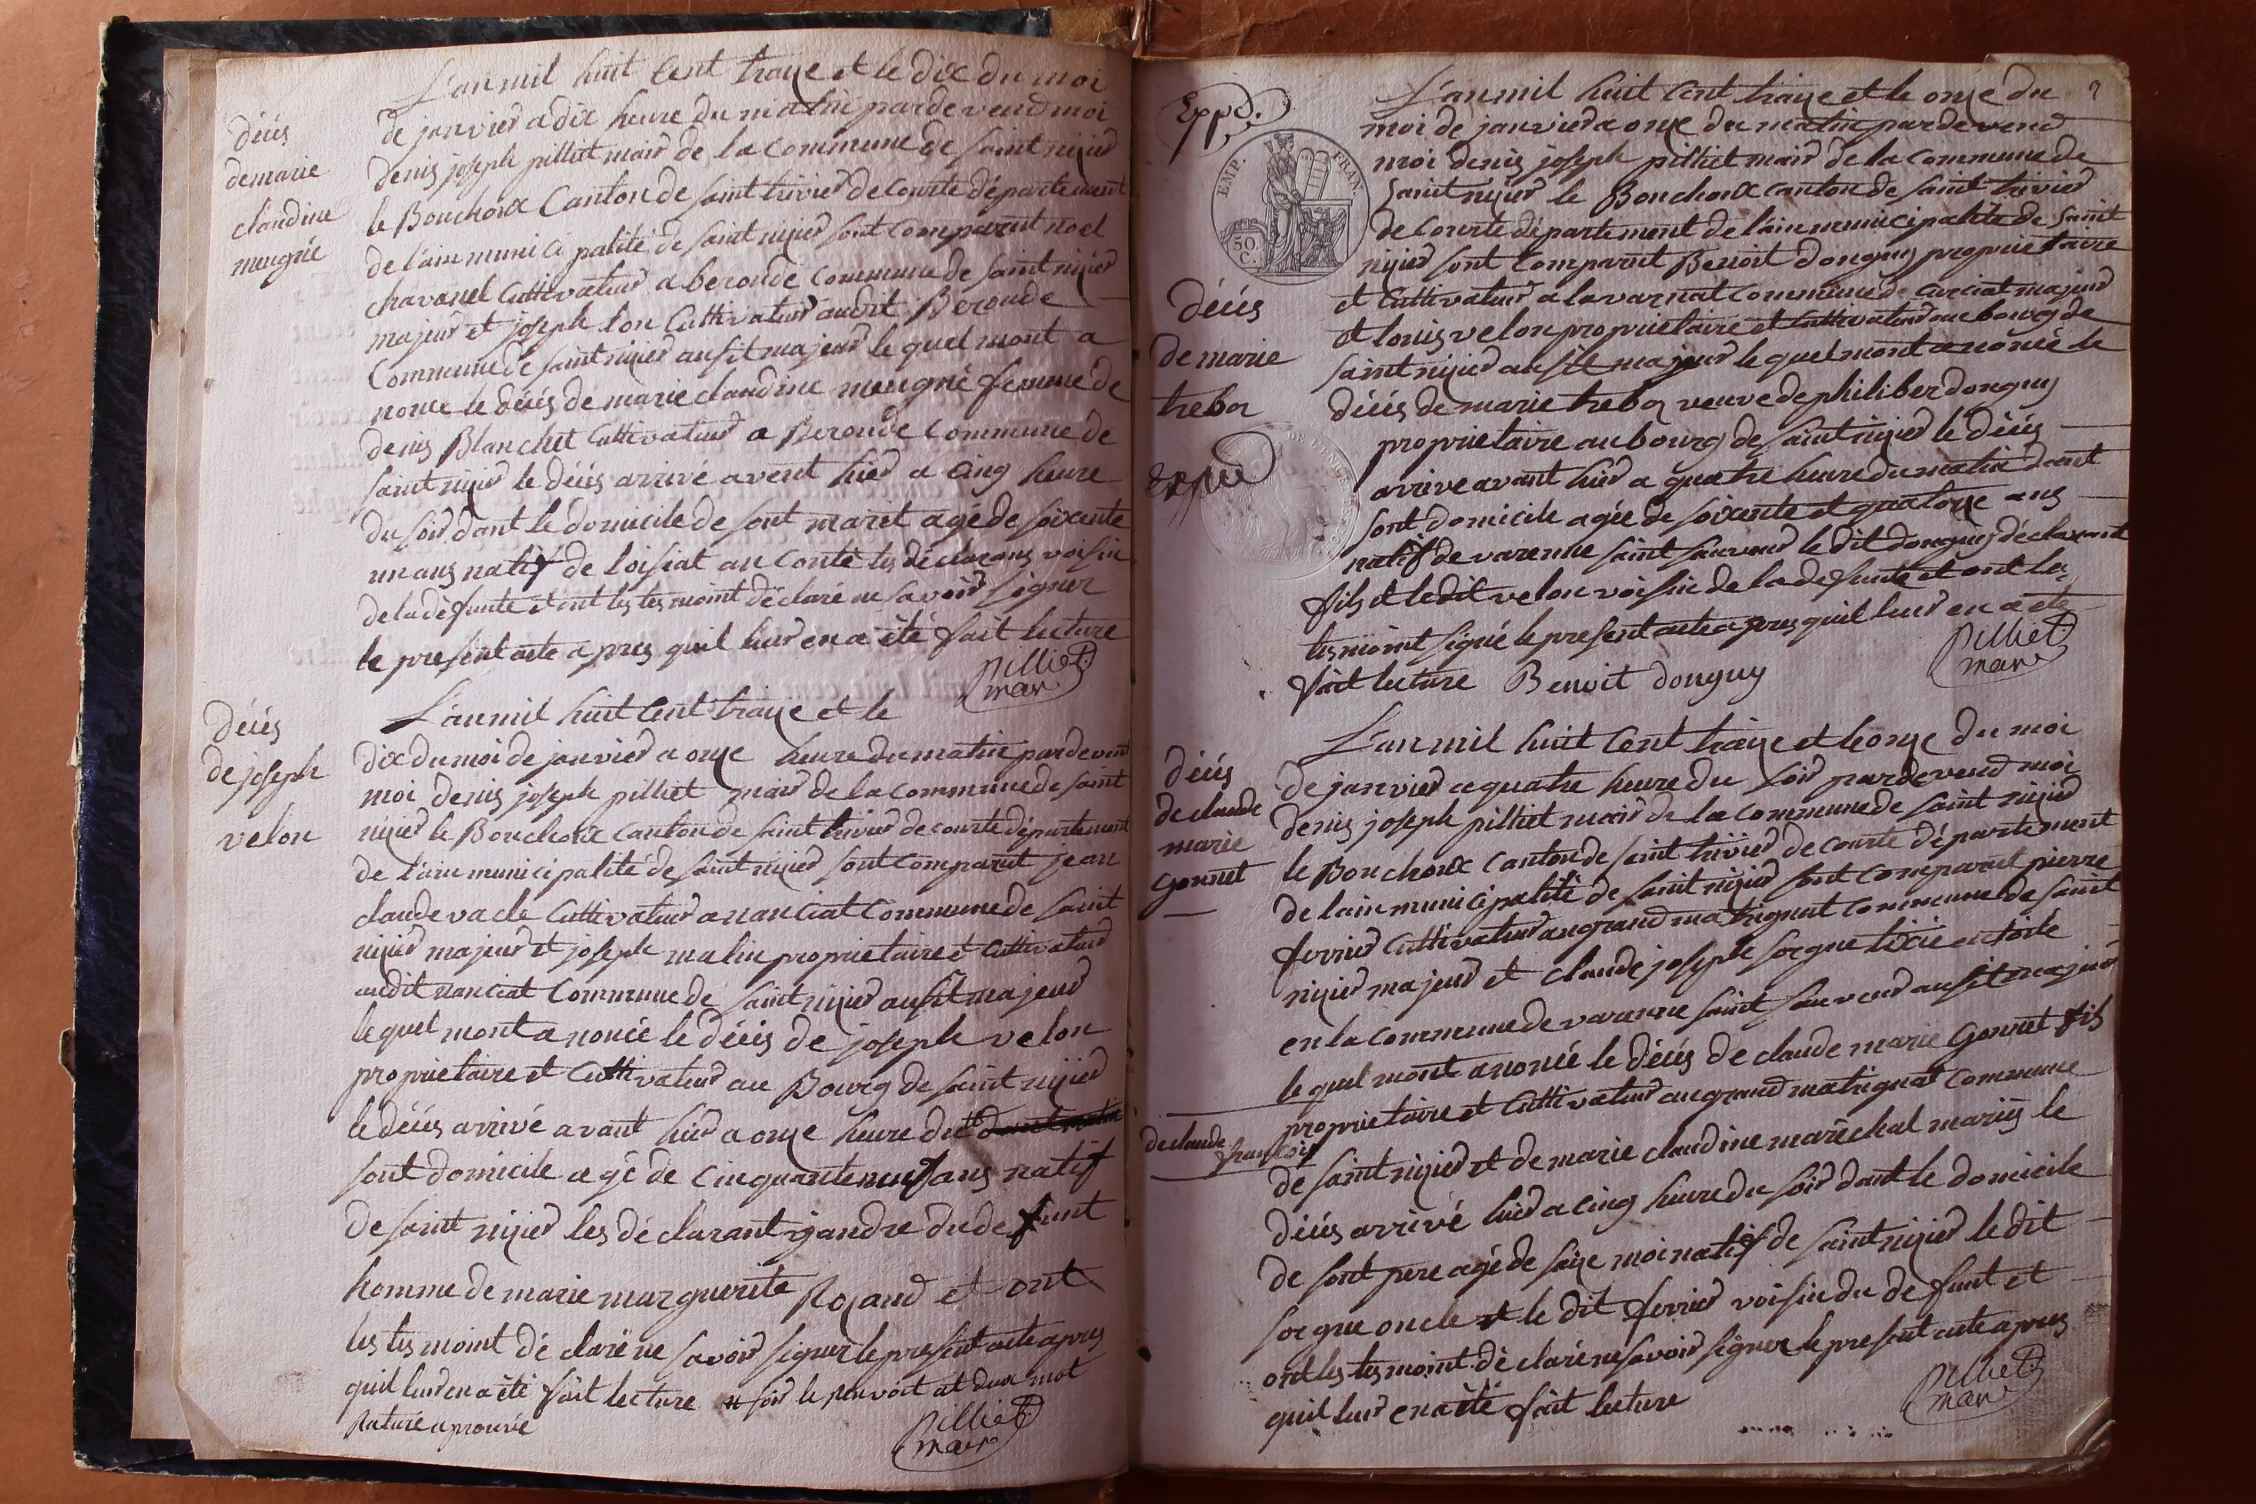 L'an mil huit cent traize et le dix du moi
de janvier a dix heure du matin pardevend moi
denis joseph pilliet mair de la commune de saint nizier
le Bouchoux Canton de saint trivier de courte département
de l'ain municipalité de saint nizier sont comparut noel
chavanel cultivateur a beronde commune de saint nizier
majeur et joseph lon cultivateur audit Beronde
Commune de saint nizier ausit majeur le quel mont a
nonce le décés de marie claudine meugnié femme de
denis Blanchet cultivateur a Beronde Commune de
saint nizier le décés arrivé avent hier a cinq heure
du soir dant le domicile de sont mariet agé de soixente
un ans natif de loisiat au conte les déclarans voisin
de la défunte et ont les tesmoint déclaré ne savoir signer
le present acte apres quil leur en a été fait lecture
Pilliet
mair
décés
de marie
claudine
meugnié
L'an mil huit cent traize et le
dix du moi de janvier a onze heure du matin pardevent
moi denis joseph pilliet mair de la commune de saint
nizier le Bouchoux canton de saint trivier de courte département
de l'ain municipalité de saint nizier sont comparut jean
claude vacle cultivateur a nanciat Commune de saint
nizier majeur et joseph malin proprietaire et cultivateur
audit nanciat Commune de saint nizier ausit majeur
le quel mont a noncé le décés de joseph velon
proprietaire et cultivateur au Bourg de saint nizier
le décés arrivé avant hier a onze heure du dant matin
sont domicile agé de cinquante neuf ans natif
de saint nizier les déclarant gandre du defunt
homme de marie marguerite Rozand et ont
les tesmoint déclaré ne savoir signer le present acte apres
quil leur en a été fait lecture soir le renvoit et deux mot
raturé aprouvé
Pilliet
mair
décés
de joseph
velon
2
L'an mil huit cent traize et le onze du
moi de janvier a onze du matin pardevend
moi denis joseph pilliet mair de la commune de
saint nizier le Bouchoux canton de saint trivier
de courte département de l'ain municipalité de saint
nizier sont comparut Benoit donguy proprietaire
et cultivateur a lavarnat commune de curciat majeur
et louis velon proprietaire et cultivateur au bourg de
saint nizier ausit majeur le quel mont a noncé le
décés de marie treboz veuve de philiber donguy
proprietaire au bourg de saint nizier le décés
arrive avant hier a quatre heure du matin dant
sont domicile agée de soixente et quatorze ans
natif de varenne saint sauveur le dit donguy déclarent
fils et le dit velon voisin de la defunte et ont les
tesmoint signé le present acte apres quil leur en a été
fait lecture Benoit donguy
Pilliet
mair
Expd.
EMP. FRAN.
50.
C.
décés
de marie
treboz
L'an mil huit cent traize et le onze du moi
de janvier a quatre heure du soir pardevend moi
denis joseph pilliet mair de la commune de saint nizier
le Bouchoux canton de saint trivier de courte département
de l'ain municipalité de saint nizier sont comparut pierre
ferrier cultivateur au grand matrignat commune de saint
nizier majeur et claude joseph sorgue tixié en toile
en la commune de varenne saint sauveur ausit majeur
le quel mont anoncé le décés de claude marie Gonnet fils
de claude
françois
proprietaire et cultivateur au grand matrignat commune
de saint nizier et de marie claudine maréchal mariés le
décés arrivé hier a cinq heure du soir dant le domicile
de sont pere agé de saize moi natif de saint nizier le dit
sorgue oncle et le dit ferrier voisin du defunt et
ont les tesmoint déclaré ne savoir signer le present acte apres
quil leur en a été fait lecture
Pilliet
mair
décés
de claude
marie
Gonnet